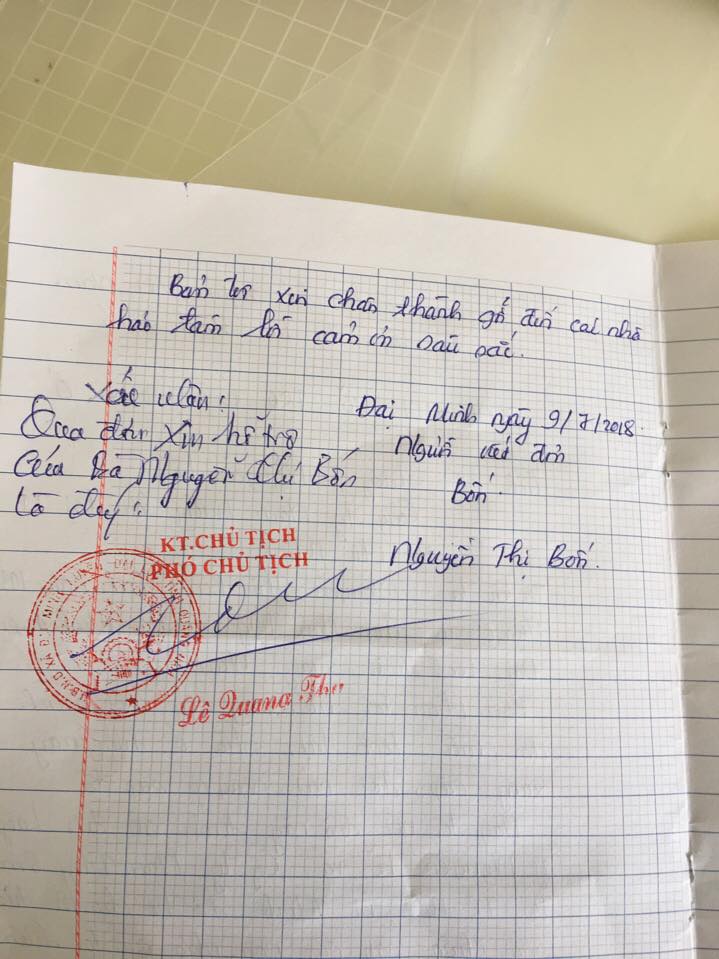 Bản tôi xin chân thành gỏ đến các nhà
hảo tâm lời cảm ơn sâu sắc.
Đại Minh ngày 9/7/2018.
Người viết đơn
Bốn.
Nguyễn Thị Bốn.
Xác nhận:
Qua đơn xin hỗ trợ
của bà Nguyễn Thị Bốn
là đúng.
KT.CHỦ TỊCH
PHÓ CHỦ TỊCH
Lê Quang